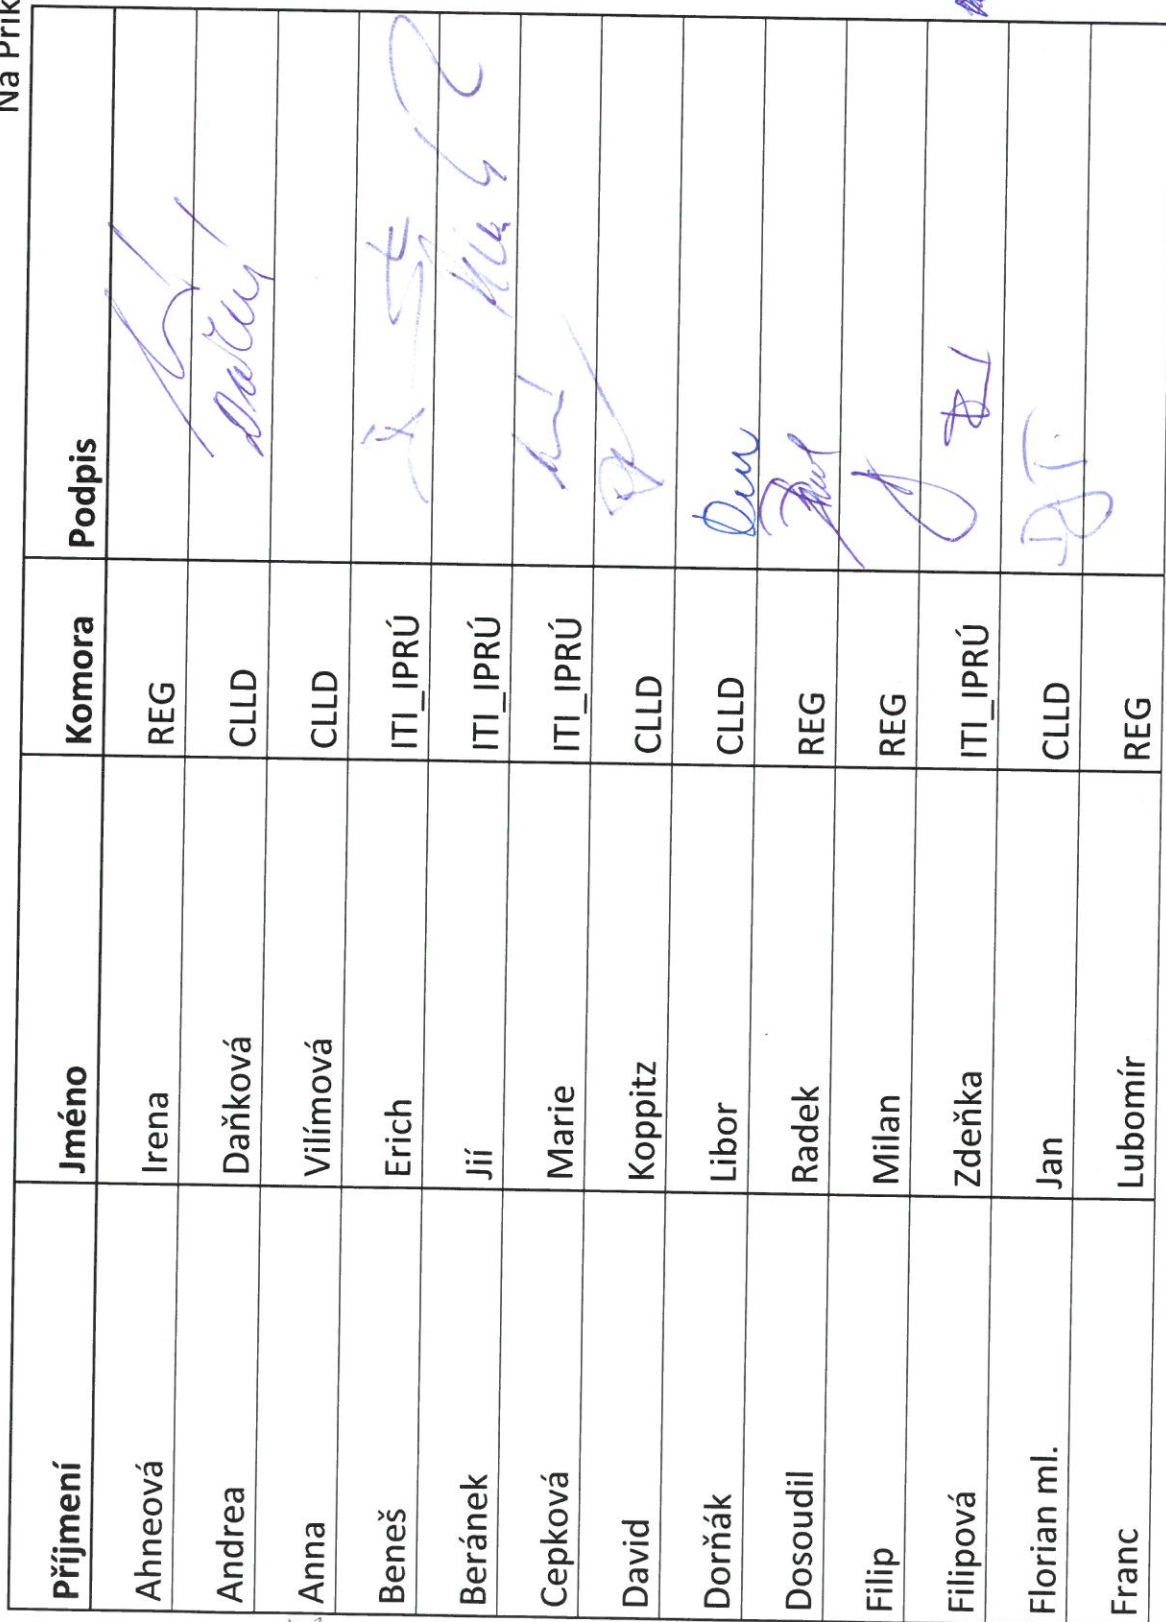 Na Přík
Příjmení Jméno Komora Podpis
Ahneová Irena REG
Andrea Daňková CLLD
Anna Vilímová CLLD
Beneš Erich ITI_IPRÚ
Beránek Jií ITI_IPRÚ
Cepková Marie ITI_IPRÚ
David Koppitz CLLD
Dorňák Libor CLLD
Dosoudil Radek REG
Filip Milan REG
Filipová Zdeňka ITI_IPRÚ
Florian ml. Jan CLLD
Franc Lubomír REG